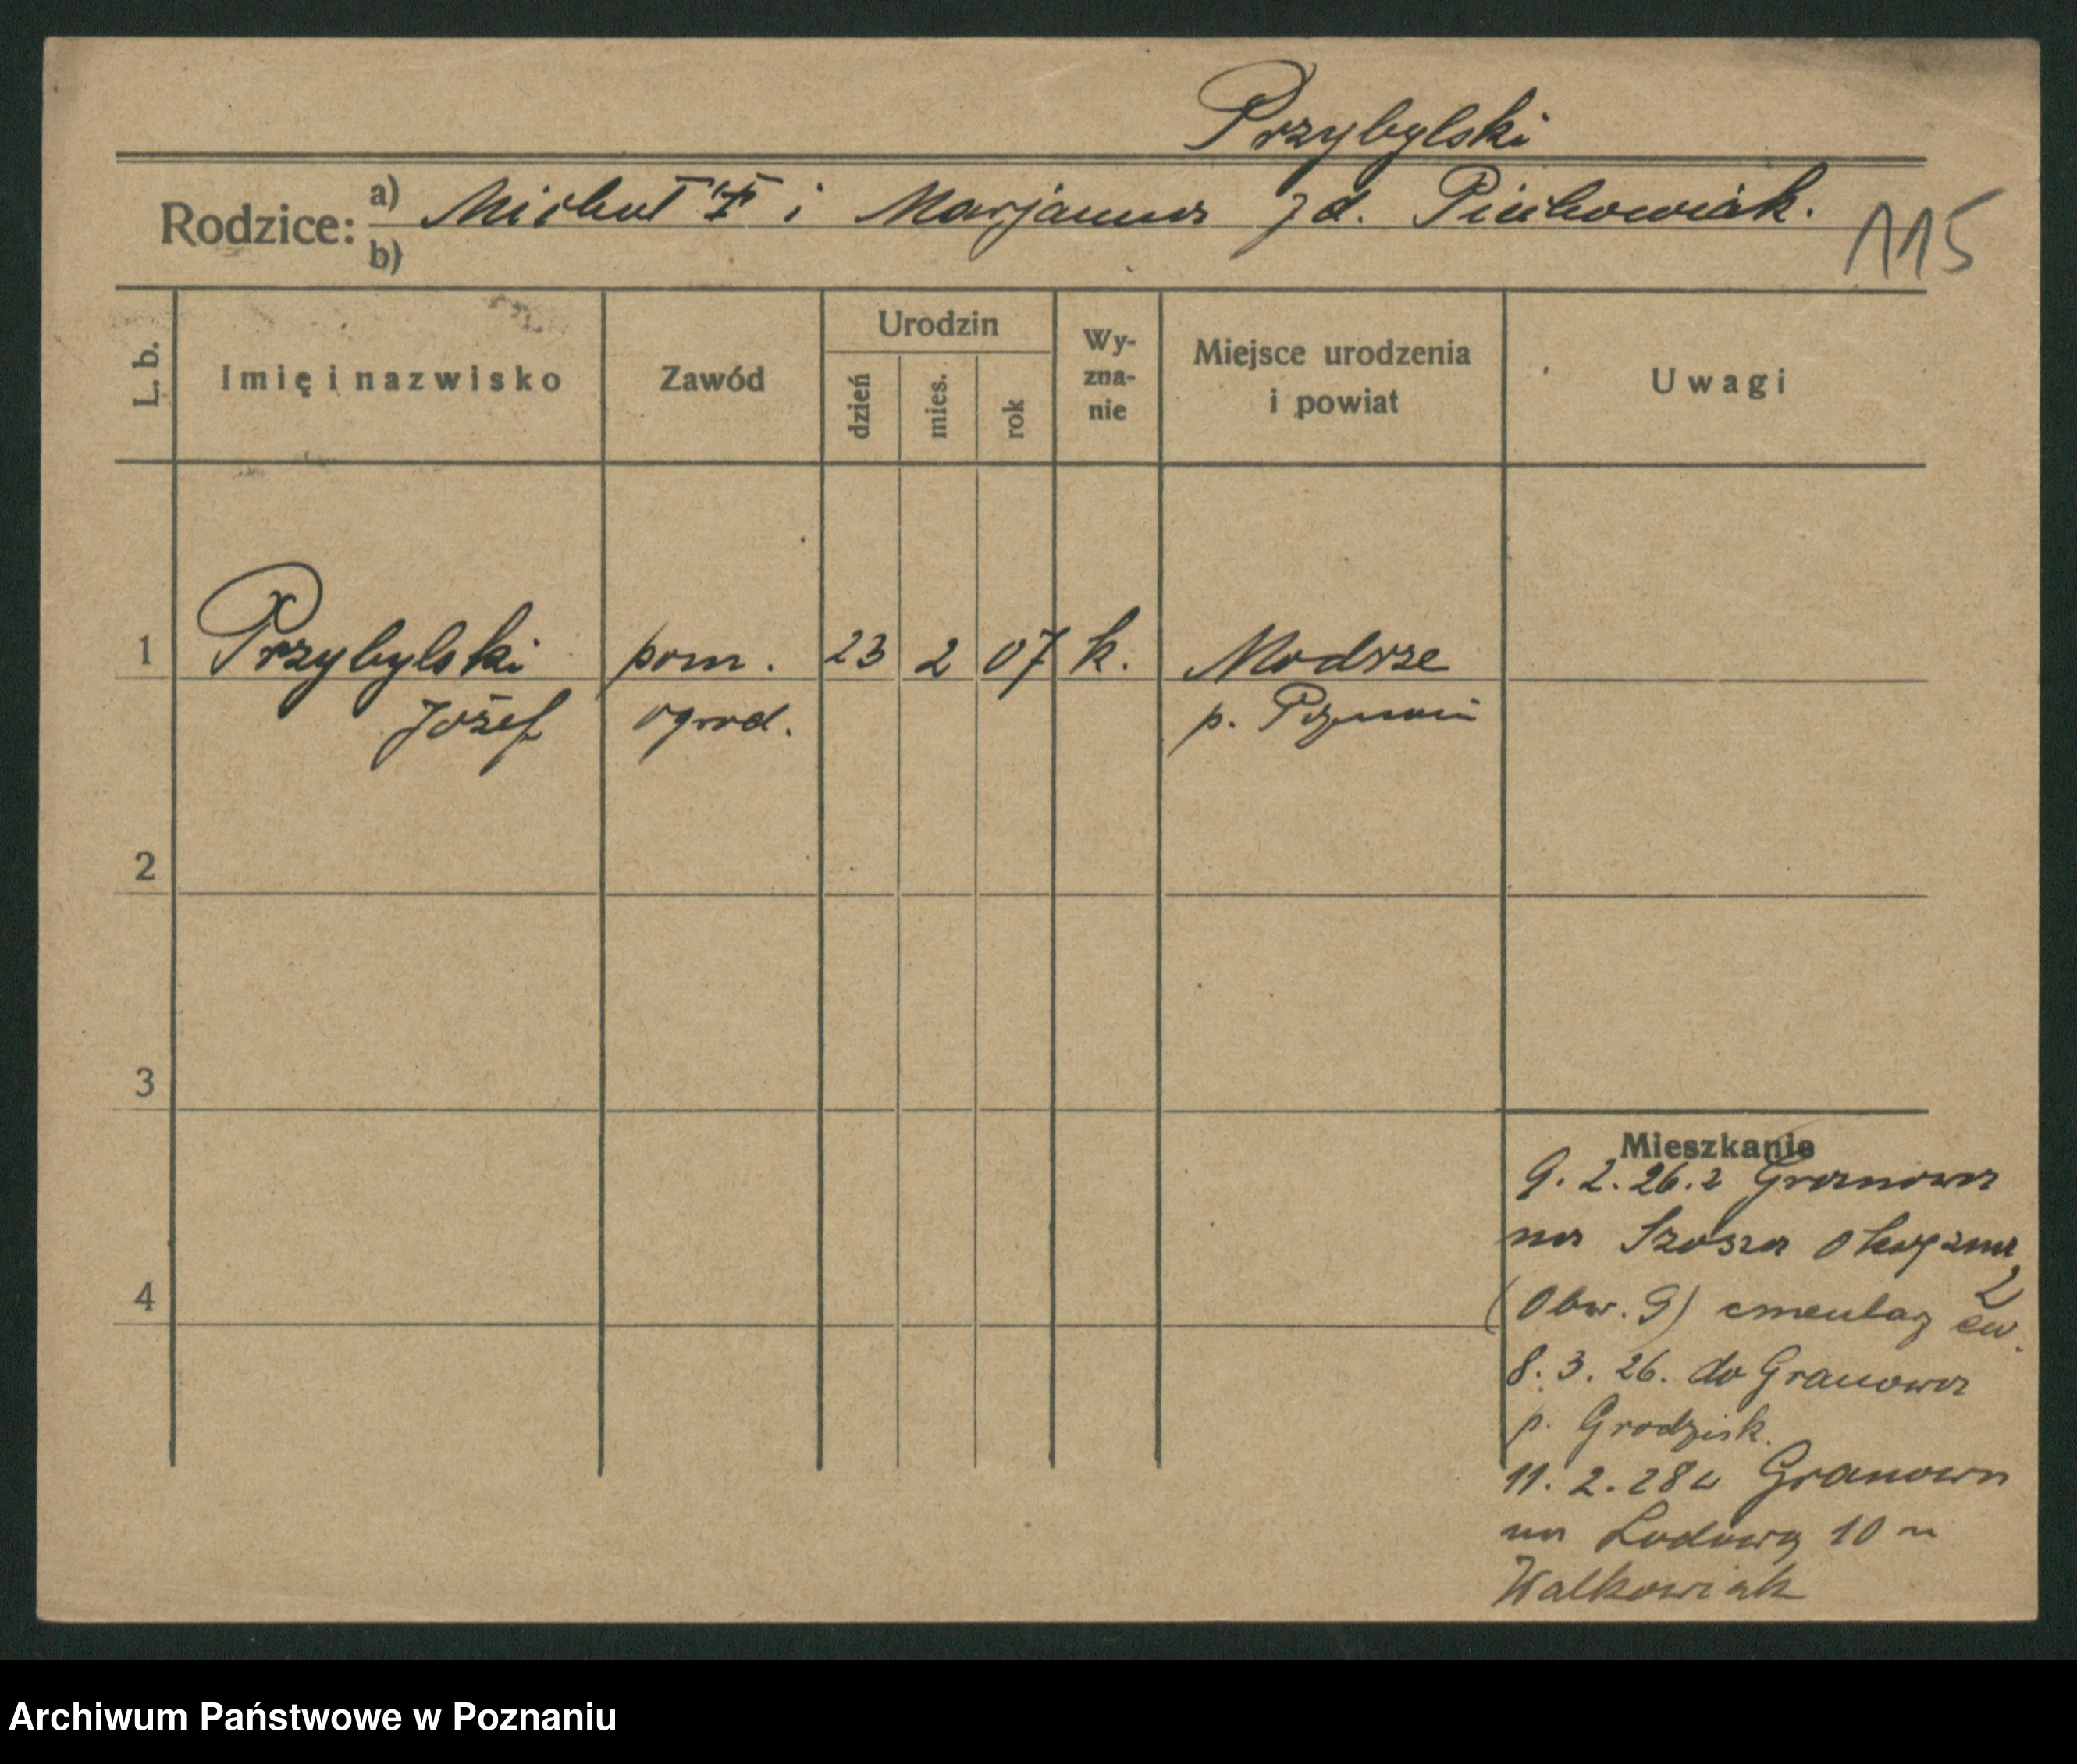 Przybylski
Rodzice: a) Michał i Marjanna zd. Piechowiak.
b)
115
L. b. Imię i nazwisko Zawód Urodzin dzień mies. rok Wy-zna-nie Miejsce urodzenia i powiat Uwagi
1 Przybylski pom. 23 2 07 k. Modrze
Józef ogrod. p. Poznań
2
3
4
Mieszkanie
9. 2. 26. z Granowa
na Szosza Okrężna 2
(Obw. 9) cmentarz ew.
8. 3. 26. do Granowa
p. Grodzisk.
11. 2. 28 z Granowa
na Lodową 10 u
Walkowiak
Archiwum Państwowe w Poznaniu